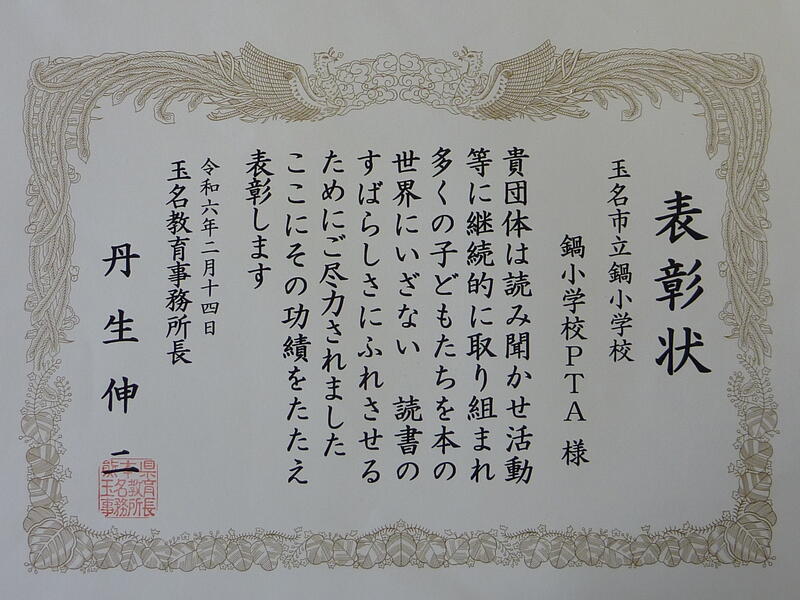 表彰状
玉名市立鍋小学校
鍋小学校PTA 様
貴団体は読み聞かせ活動
等に継続的に取り組まれ
多くの子どもたちを本の
世界にいざない 読書の
すばらしさにふれさせる
ためにご尽力されました
ここにその功績をたたえ
表彰します
令和六年二月十四日
玉名教育事務所長
丹生伸二
熊本県教育
玉名教育
事務所長